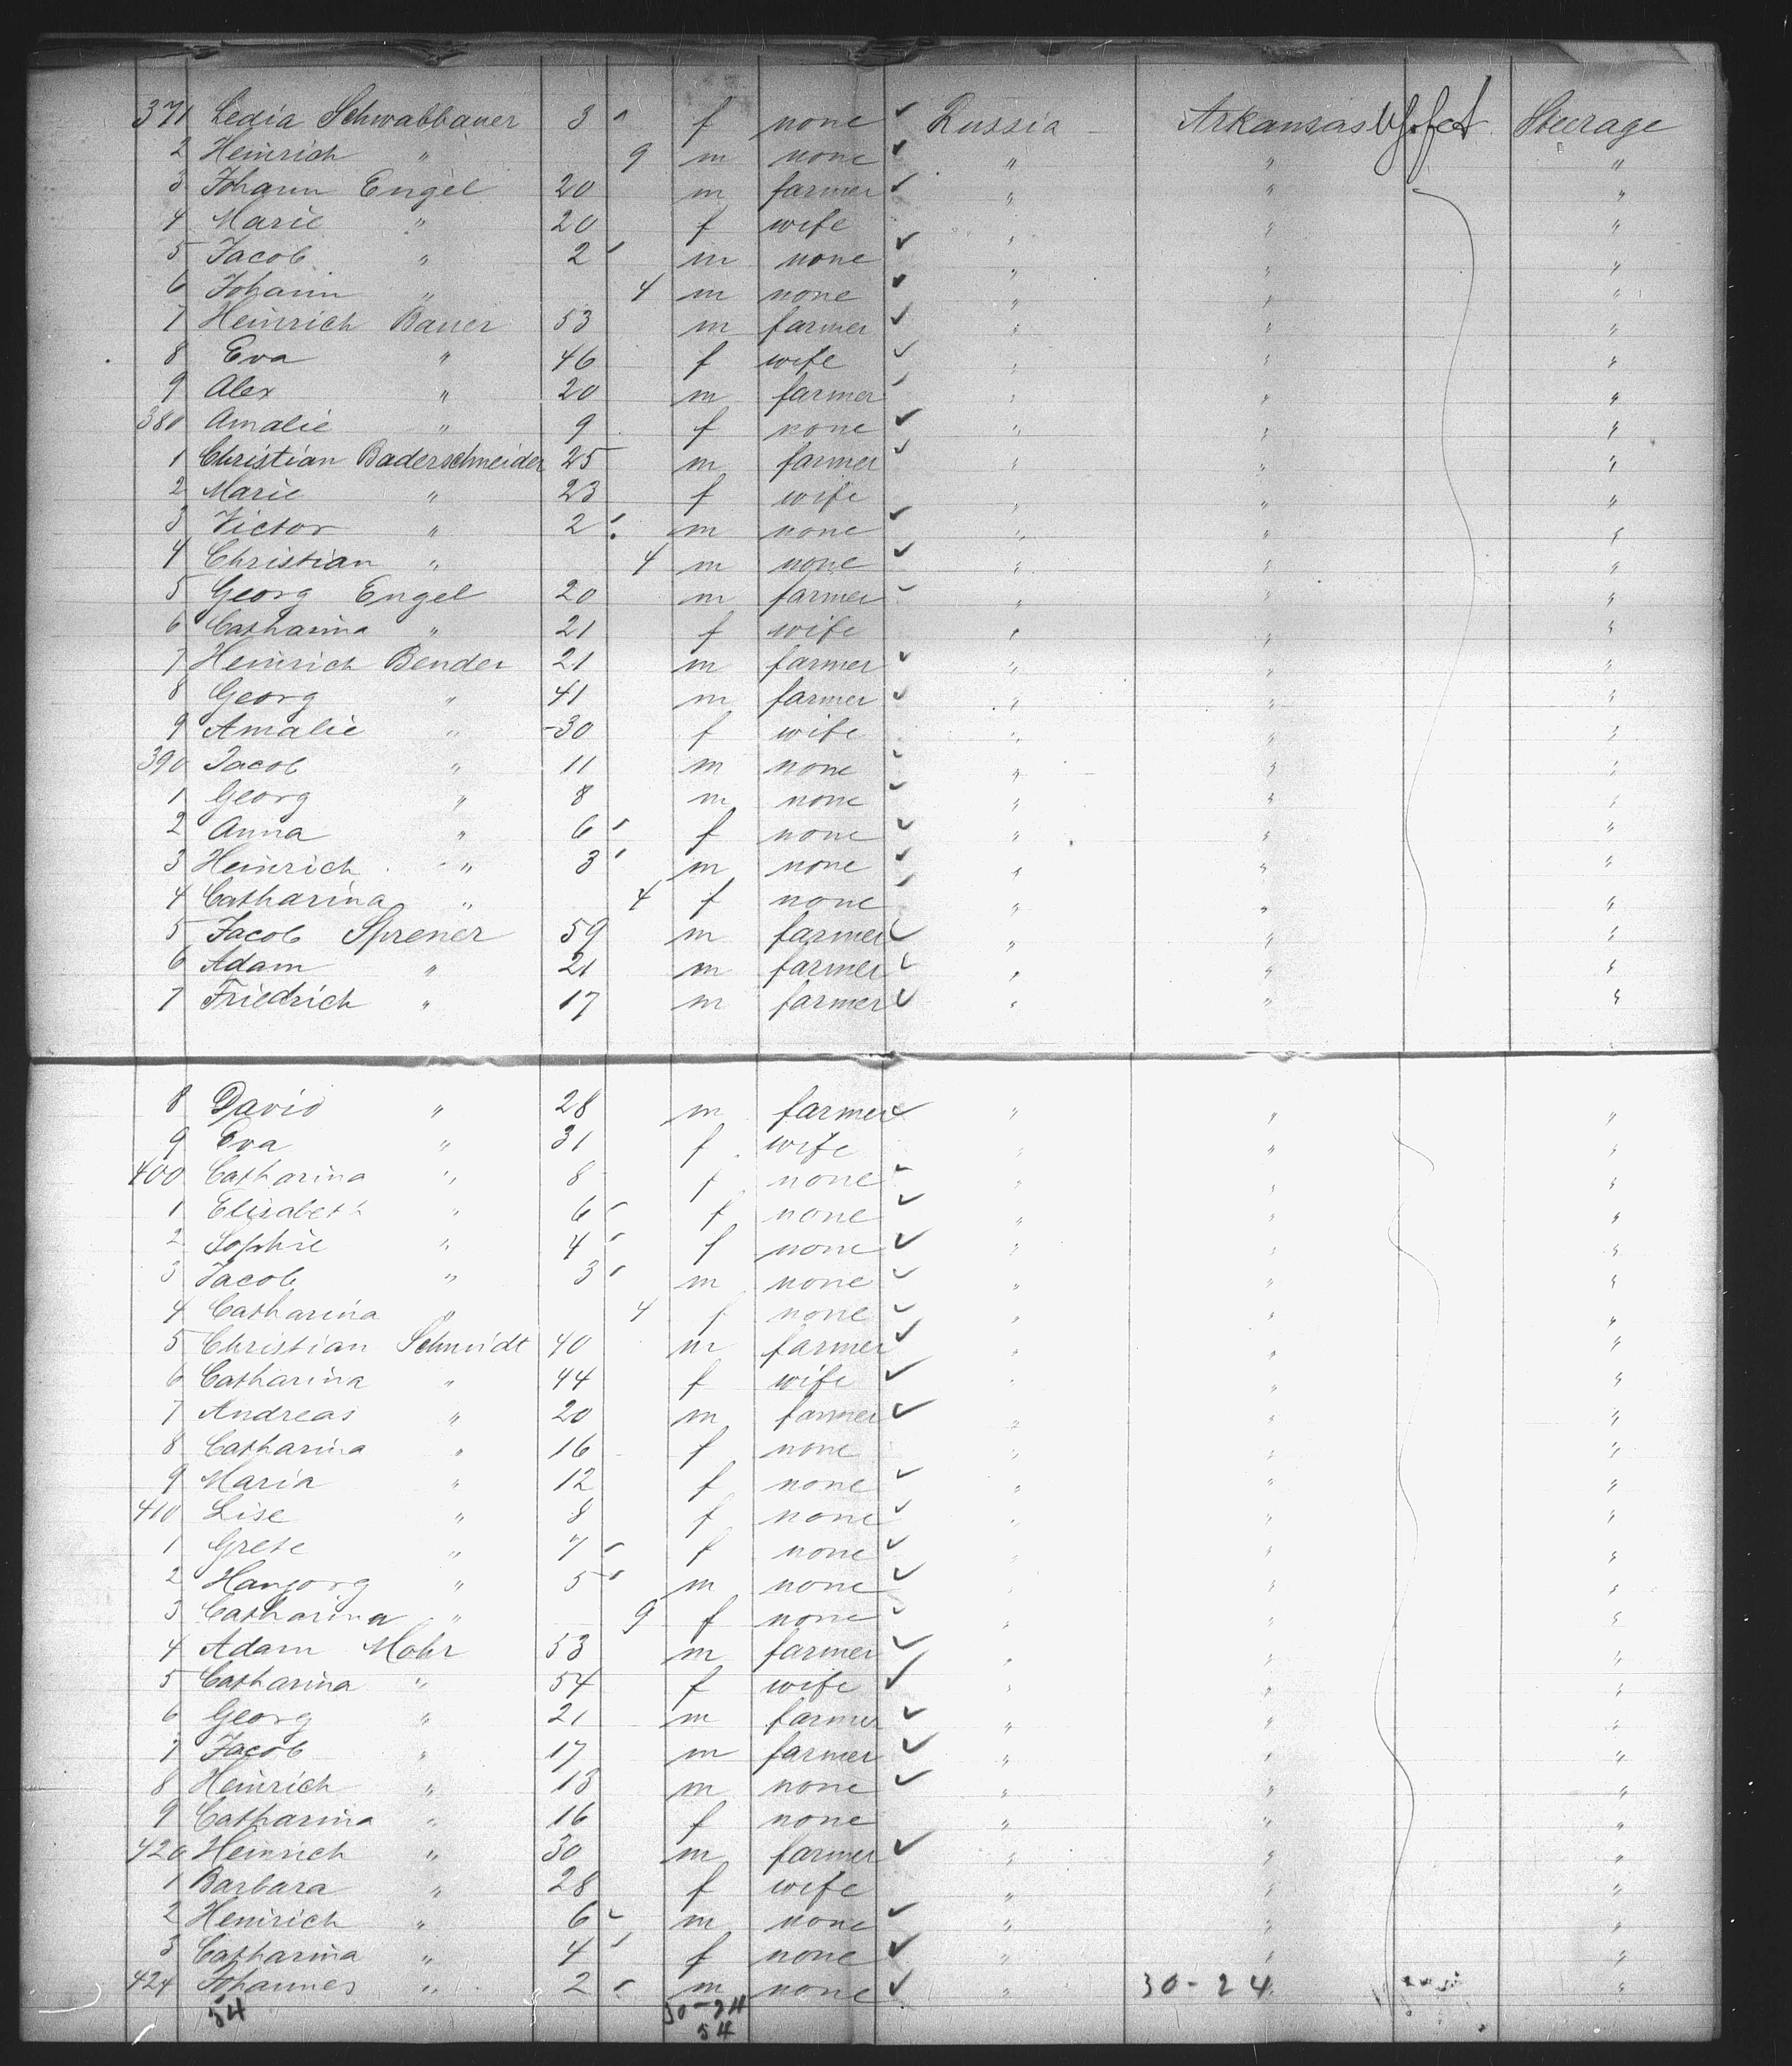 371 Ledia Schwabbauer 3 f none Russia Arkansas Steerage
2 Heinrich " 9 m none " " "
3 Johann Engel 20 m farmer " " "
4 Marie " 20 f wife " " "
5 Jacob " 2 m none " " "
6 Johann " 4 m none " " "
7 Heinrich Bauer 53 m farmer " " "
8 Eva " 46 f wife " " "
9 Alex " 20 m farmer " " "
380 Amalie " 9 f none " " "
1 Christian Baderschneider 25 m farmer " " "
2 Marie " 23 f wife " " "
3 Victor " 2 m none " " "
4 Christian " 4 m none " " "
5 Georg Engel 20 m farmer " " "
6 Catharina " 21 f wife " " "
7 Heinrich Bender 21 m farmer " " "
8 Georg " 41 m farmer " " "
9 Amalie " 30 f wife " " "
390 Jacob " 11 m none " " "
1 Georg " 8 m none " " "
2 Anna " 6 f none " " "
3 Heinrich " 3 m none " " "
4 Catharina " 4 f none " " "
5 Jacob Sprener 59 m farmer " " "
6 Adam " 21 m farmer " " "
7 Friedrich " 17 m farmer " " "
8 David " 28 m farmer " " "
9 Eva " 31 f wife " " "
400 Catharina " 8 f none " " "
1 Elisabeth " 6 f none " " "
2 Sophie " 4 f none " " "
3 Jacob " 3 m none " " "
4 Catharina " 4 f none " " "
5 Christian Schmidt 40 m farmer " " "
6 Catharina " 44 f wife " " "
7 Andreas " 20 m farmer " " "
8 Catharina " 16 f none " " "
9 Maria " 12 f none " " "
410 Lise " 8 f none " " "
1 Grete " 7 f none " " "
2 Hanjorg " 5 m none " " "
3 Catharina " 9 f none " " "
4 Adam Mohr 53 m farmer " " "
5 Catharina " 54 f wife " " "
6 Georg " 21 m farmer " " "
7 Jacob " 17 m farmer " " "
8 Heinrich " 13 m none " " "
9 Catharina " 16 f none " " "
420 Heinrich " 30 m farmer " " "
1 Barbara " 28 f wife " " "
2 Heinrich " 6 m none " " "
3 Catharina " 4 f none " " "
424 Johannes " 2 m none " 30-24 " "
54 30-24
54